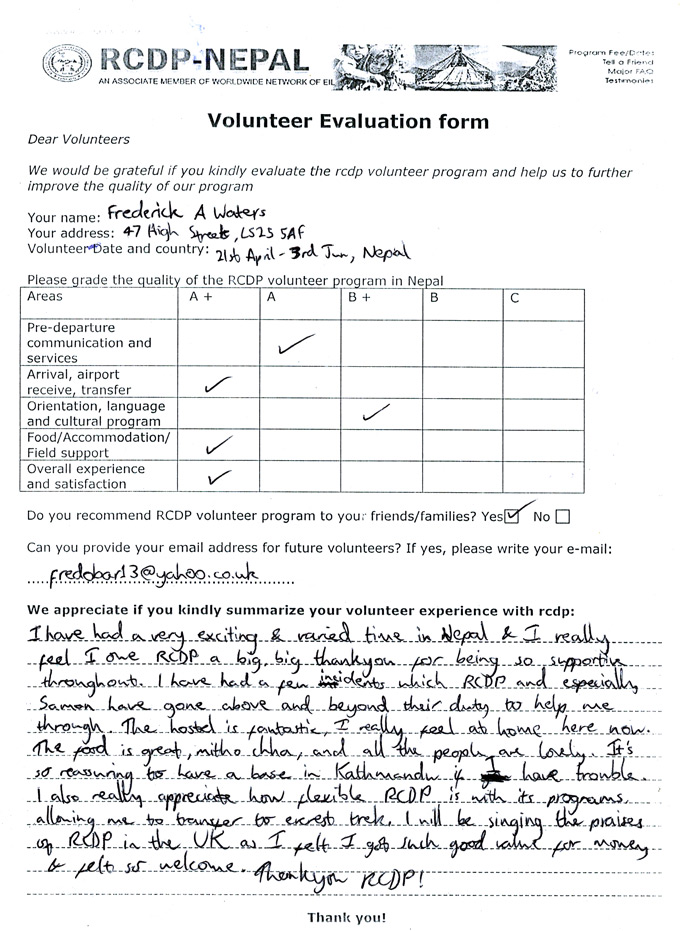 RCDP-NEPAL
AN ASSOCIATE MEMBER OF WORLDWIDE NETWORK OF EIL
Program Fee/Dates
Tell a Friend
Major FAQ
Testimonies
Volunteer Evaluation form
Dear Volunteers
We would be grateful if you kindly evaluate the rcdp volunteer program and help us to further
improve the quality of our program
Your name: Frederick A Waters
Your address: 47 High Streets, LS25 5AF
Volunteer Date and country: 21st April - 3rd Jun, Nepal
Please grade the quality of the RCDP volunteer program in Nepal
Areas A + A B + B C
Pre-departure
communication and
services ✓
Arrival, airport
receive, transfer ✓
Orientation, language
and cultural program ✓
Food/Accommodation/
Field support ✓
Overall experience
and satisfaction ✓
Do you recommend RCDP volunteer program to your friends/families? Yes ☑ No ☐
Can you provide your email address for future volunteers? If yes, please write your e-mail:
fredobar13@yahoo.co.uk
We appreciate if you kindly summarize your volunteer experience with rcdp:
I have had a very exciting & varied time in Nepal & I really
feel I owe RCDP a big, big thankyou for being so supportive
throughout. I have had a few insidents which RCDP and especially
Samon have gone above and beyond their duty to help me
through. The hostel is fantastic, I really feel at home here now.
The food is great, mitho chha, and all the people are lovely. It's
so reasuring to have a base in Kathmandu if I have trouble.
I also really appreciate how flexible RCDP is with its programs
allowing me to transfer to everest trek. I will be singing the praises
of RCDP in the UK as I felt I got such good value for money
& felt so welcome. Thankyou RCDP!
Thank you!